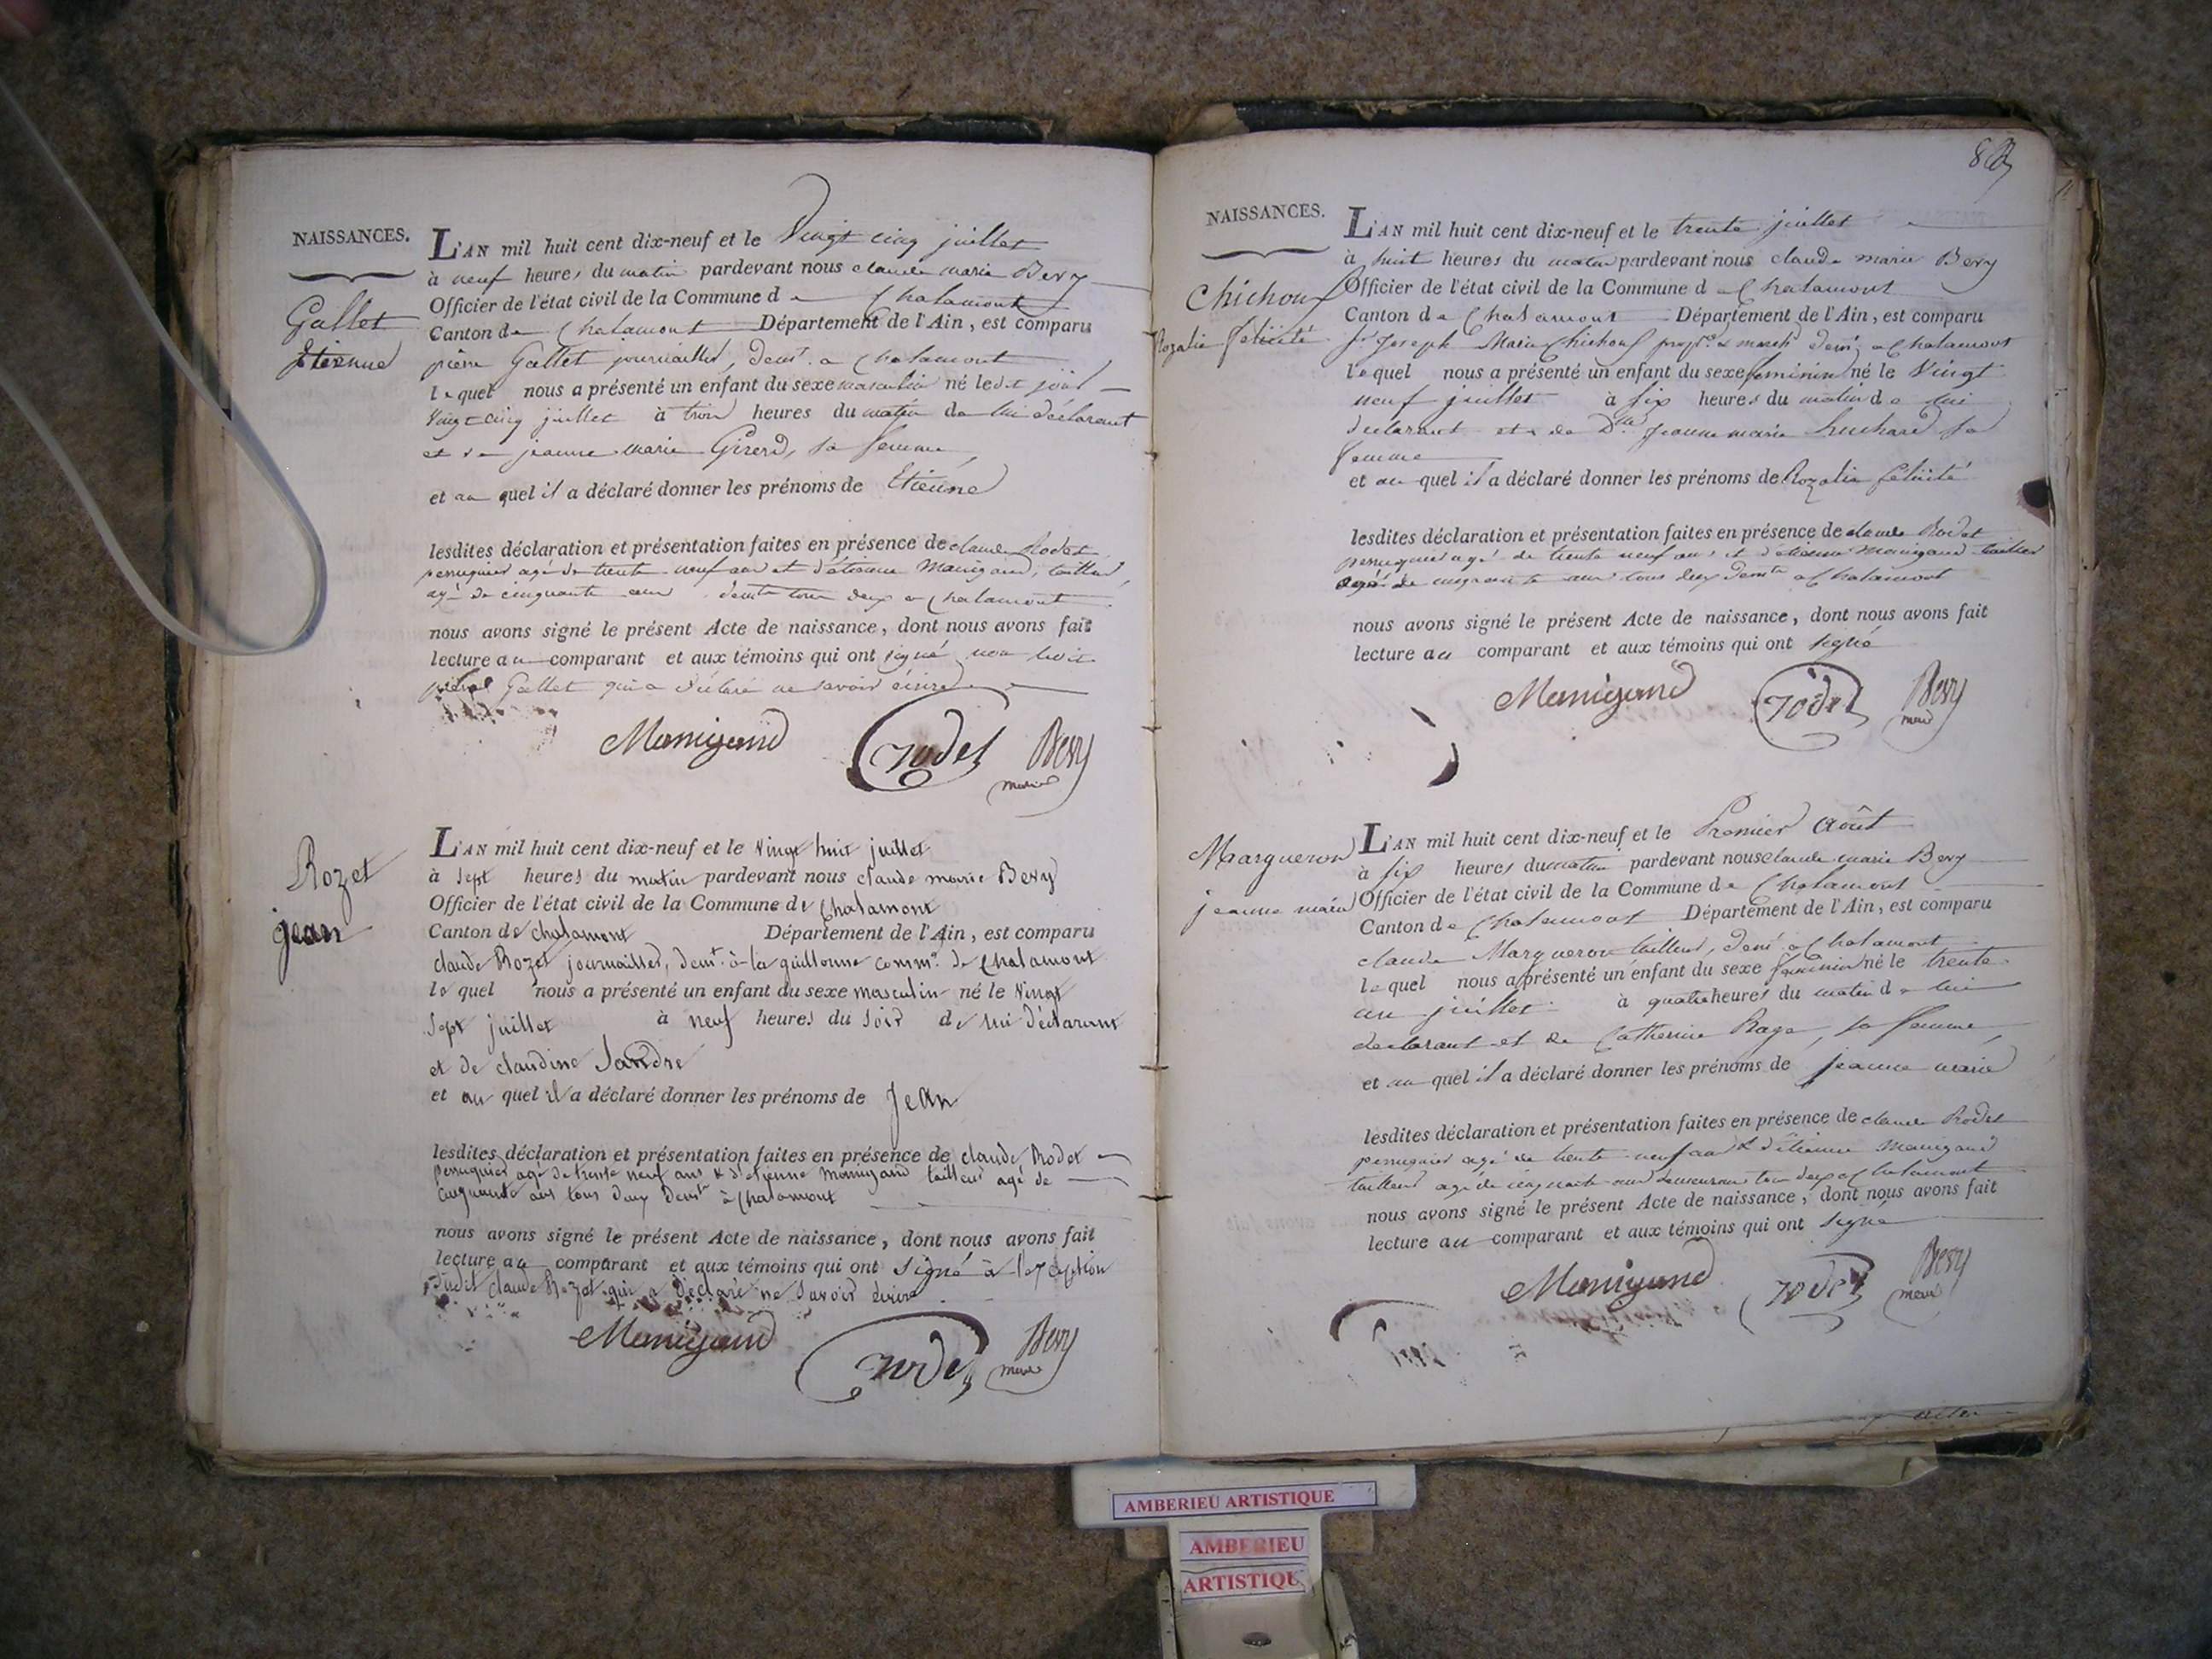 NAISSANCES.
Gallet
Etienne
L'AN mil huit cent dix-neuf et le Vingt cinq juillet
à neuf heures du matin pardevant nous claude marie Bevy
Officier de l'état civil de la Commune de Chalamont
Canton de Chalamont Département de l'Ain, est comparu
pierre Gallet journailler, demt. a Chalamont
lequel nous a présenté un enfant du sexe masculin né ledit jour
Vingt cinq juillet à trois heures du matin de lui déclarant
et de jeanne marie Girerd, sa femme,
et au quel il a déclaré donner les prénoms de Etienne
lesdites déclaration et présentation faites en présence de claude Rodet
perruquier agé de trente neuf ans et d'étienne Manigand, tailleur,
agé de cinquante ans demts tous deux a Chalamont
nous avons signé le présent Acte de naissance, dont nous avons fait
lecture au comparant et aux témoins qui ont signé non ledit
pierre Gallet qui a déclaré ne savoir écrire
Manigand rodet Bevy
maire
Rozet
jean
L'AN mil huit cent dix-neuf et le vingt huit juillet
à sept heures du matin pardevant nous claude marie Bevy
Officier de l'état civil de la Commune de Chalamont
Canton de chalamont Département de l'Ain, est comparu
claude Rozet journailler, demt. à la guillonne comme. de Chalamont
le quel nous a présenté un enfant du sexe masculin né le vingt
sept juillet à neuf heures du soir de lui déclarant
et de claudine Sandre
et au quel il a déclaré donner les prénoms de Jean
lesdites déclaration et présentation faites en présence de claude Rodet
perruquier agé de trente neuf ans & d'étienne Manigand tailleur agé de
cinquante ans tous deux demts à Chalamont
nous avons signé le présent Acte de naissance, dont nous avons fait
lecture au comparant et aux témoins qui ont signé à l'exception
dudit claude Rozet qui a déclaré ne savoir écrire
Manigand rodet Bevy
maire
NAISSANCES.
Chichoux
Rozalie félicité
L'AN mil huit cent dix-neuf et le trente juillet
à huit heures du matin pardevant nous claude marie Bevy
Officier de l'état civil de la Commune de Chalamont
Canton de Chalamont Département de l'Ain, est comparu
Sr Joseph Marie Chichoux propre & marchd demt a Chalamont
lequel nous a présenté un enfant du sexe féminin né le Vingt
neuf juillet à six heures du matin de lui
déclarant et de Dme Jeanne marie huchard sa
femme
et au quel il a déclaré donner les prénoms de Rozalie félicité
lesdites déclaration et présentation faites en présence de claude Rodet
perruquier agé de trente neuf ans et d'étienne Manigand tailleur
agé de cinquante ans tous deux demts a Chalamont
nous avons signé le présent Acte de naissance, dont nous avons fait
lecture au comparant et aux témoins qui ont signé
Manigand rodet Bevy
maire
Margueron
jeanne marie
L'AN mil huit cent dix-neuf et le Premier Août
à six heures du matin pardevant nous claude marie Bevy
Officier de l'état civil de la Commune de Chalamont
Canton de Chalamont Département de l'Ain, est comparu
claude Margueron tailleur, demt a Chalamont
lequel nous a présenté un enfant du sexe féminin né le trente
un juillet à quatre heures du matin de lui
déclarant et de Catherine Rage, sa femme,
et au quel il a déclaré donner les prénoms de jeanne marie
lesdites déclaration et présentation faites en présence de claude Rodet
perruquier agé de trente neuf ans & d'étienne Manigand
tailleur agé de cinquante ans demeurans tous deux a Chalamont
nous avons signé le présent Acte de naissance, dont nous avons fait
lecture au comparant et aux témoins qui ont signé
Manigand rodet Bevy
maire
AMBERIEU ARTISTIQUE
AMBERIEU
ARTISTIQUE